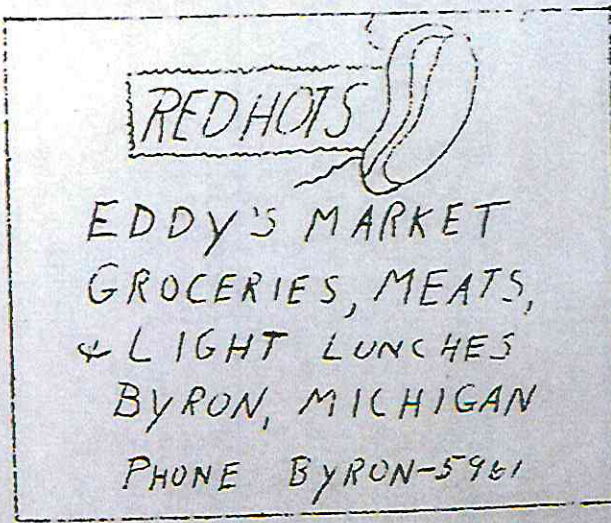 RED HOTS
EDDY'S MARKET
GROCERIES, MEATS,
& LIGHT LUNCHES
BYRON, MICHIGAN
PHONE BYRON-5961